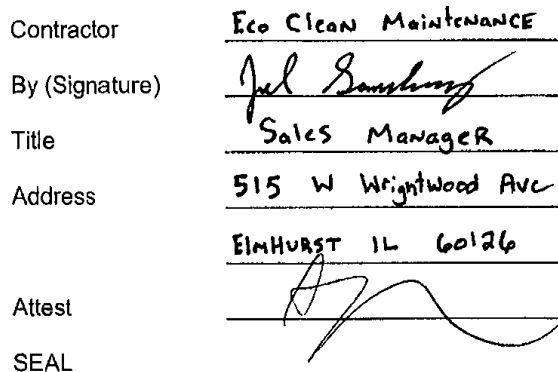 Contractor Eco Clean Maintenance
By (Signature) Joel
Title Sales Manager
Address 515 W Wrightwood Ave
Elmhurst IL 60126
Attest
SEAL